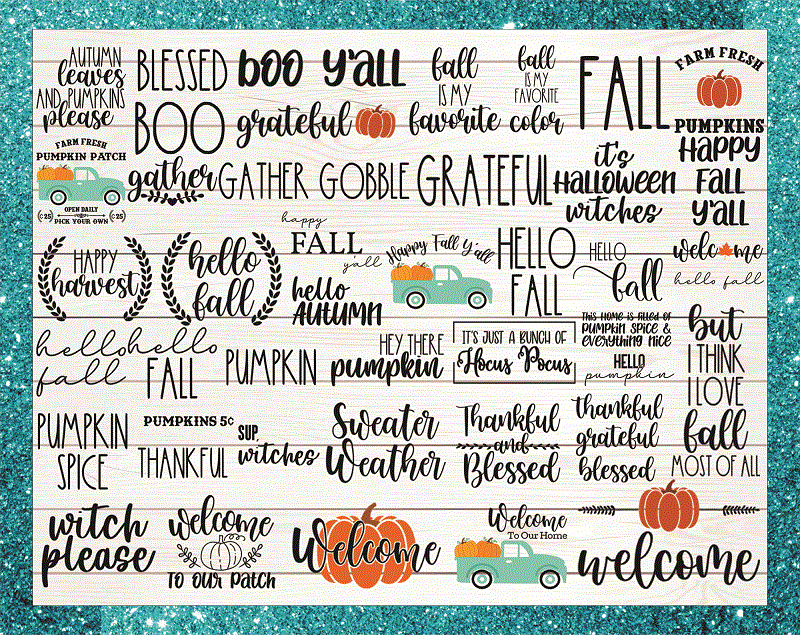 AUTUMN
leaves
AND PUMPKINS
please
BLESSED
boo y'all
fall
IS MY
favorite
fall
IS MY
FAVORITE
color
FALL
FARM FRESH
PUMPKINS
BOO
grateful
FARM FRESH
PUMPKIN PATCH
OPEN DAILY
PICK YOUR OWN
C25
C25
gather
GATHER
GOBBLE
GRATEFUL
it's
HALLOWEEN
witches
Happy
FALL
y'all
HAPPY
harvest
hello
fall
happy
FALL
y'all
hello
AUTUMN
Happy Fall Y'all
HELLO
FALL
HELLO
fall
welcome
hello fall
hello
fall
hello
FALL
PUMPKIN
HEY THERE
pumpkin
IT'S JUST A BUNCH OF
Hocus Pocus
This home is filled of
pumpkin spice &
everything nice
HELLO
pumpkin
but
I THINK
I LOVE
fall
MOST OF ALL
PUMPKIN
SPICE
PUMPKINS 5¢
THANKFUL
SUP,
witches
Sweater
Weather
Thankful
and
Blessed
thankful
grateful
blessed
witch
please
welcome
TO OUR PATCH
Welcome
Welcome
To Our Home
welcome